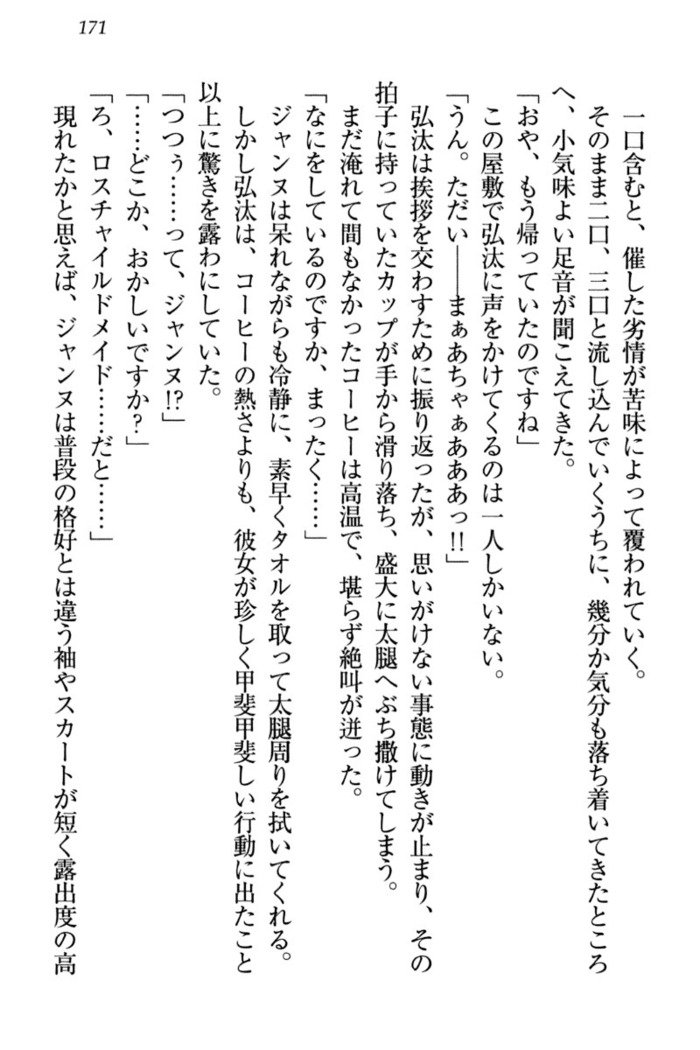 171
一口含むと、催した劣情が苦味によって覆われていく。
そのまま二口、三口と流し込んでいくうちに、幾分か気分も落ち着いてきたところ
へ、小気味よい足音が聞こえてきた。
「おや、もう帰っていたのですね」
この屋敷で弘汰に声をかけてくるのは一人しかいない。
「うん。ただい――まぁあちゃぁあああっ!!」
弘汰は挨拶を交わすために振り返ったが、思いがけない事態に動きが止まり、その
拍子に持っていたカップが手から滑り落ち、盛大に太腿へぶち撒けてしまう。
まだ淹れて間もなかったコーヒーは高温で、堪らず絶叫が迸った。
「なにをしているのですか、まったく……」
ジャンヌは呆れながらも冷静に、素早くタオルを取って太腿周りを拭いてくれる。
しかし弘汰は、コーヒーの熱さよりも、彼女が珍しく甲斐甲斐しい行動に出たこと
以上に驚きを露わにしていた。
「つつぅ……って、ジャンヌ!?」
「……どこか、おかしいですか?」
「ろ、ロスチャイルドメイド……だと……」
現れたかと思えば、ジャンヌは普段の格好とは違う袖やスカートが短く露出度の高